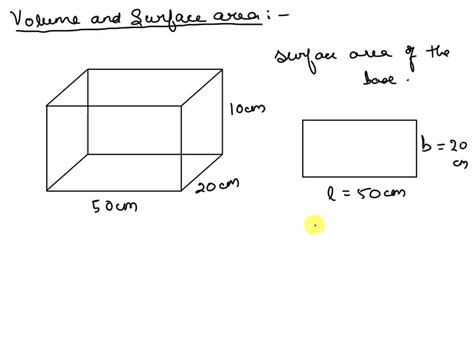 Volume and Surface area:-
Surface area of the
base.
10cm
20cm
50cm
b = 20
cm
l = 50cm